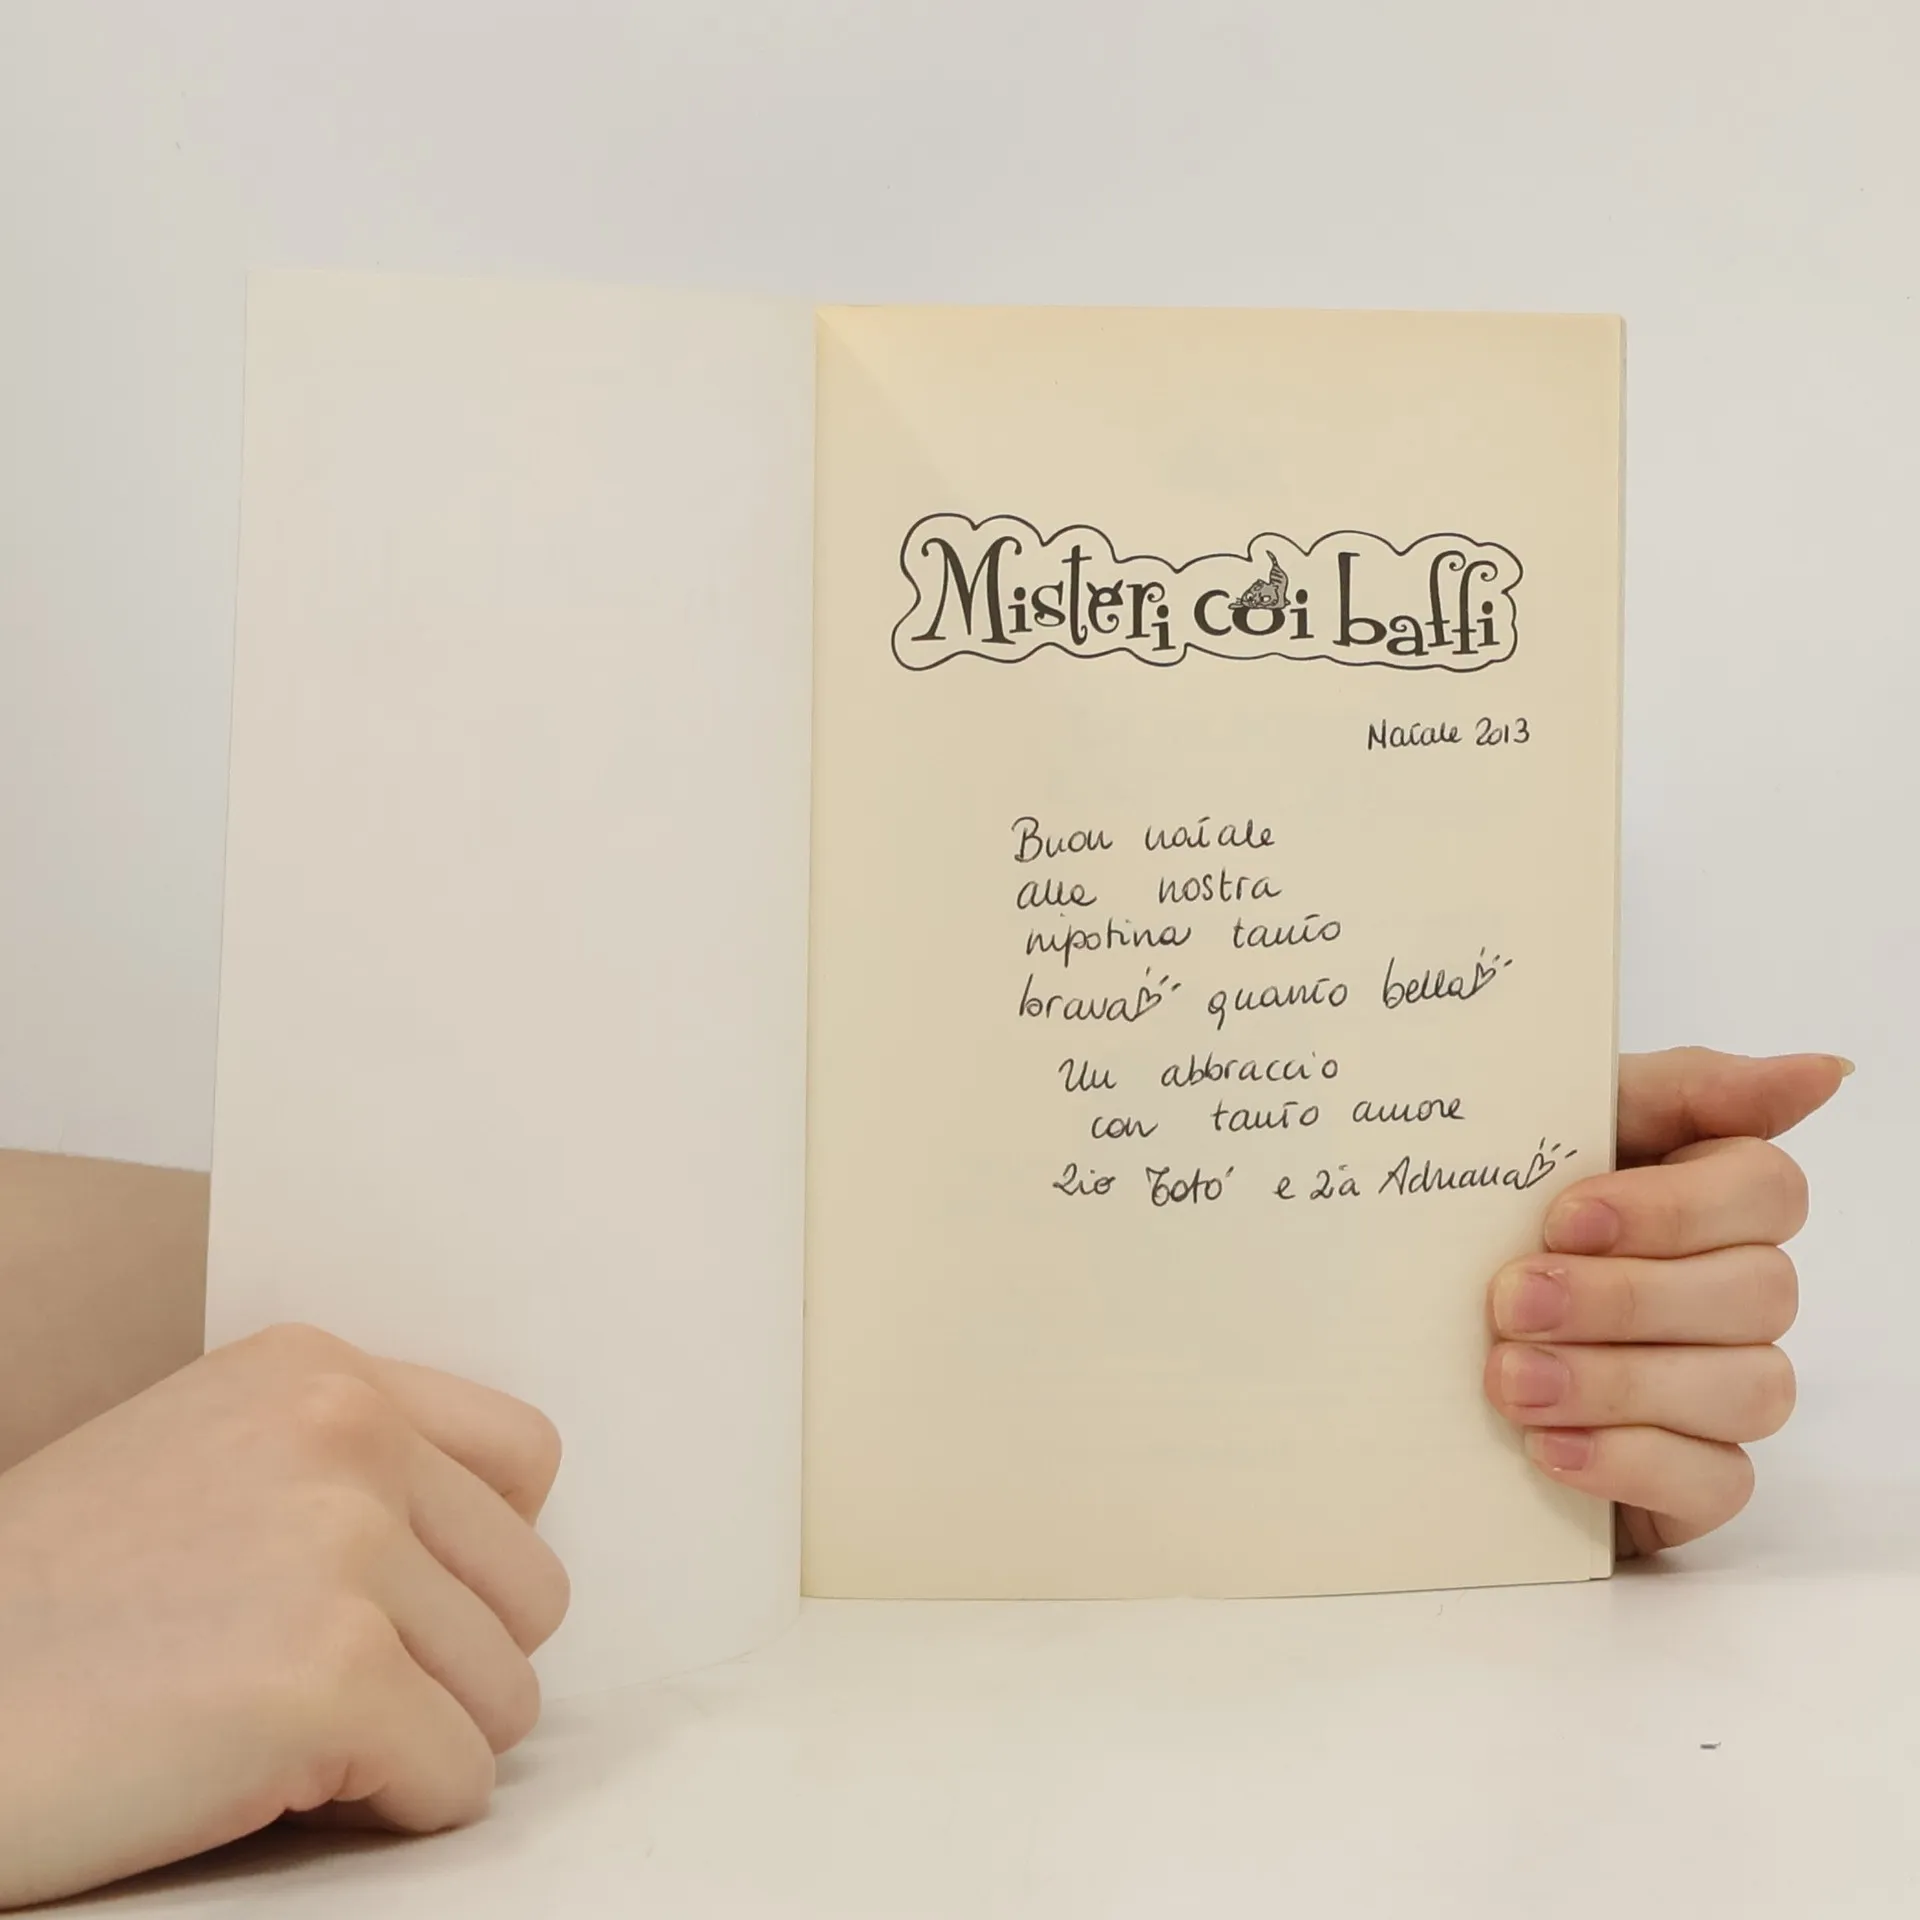 Misteri coi baffi
Natale 2013
Buon natale
alla nostra
nipotina tanto
brava quanto bella
Un abbraccio
con tanto amore
Zio Totò e Zia Adriana